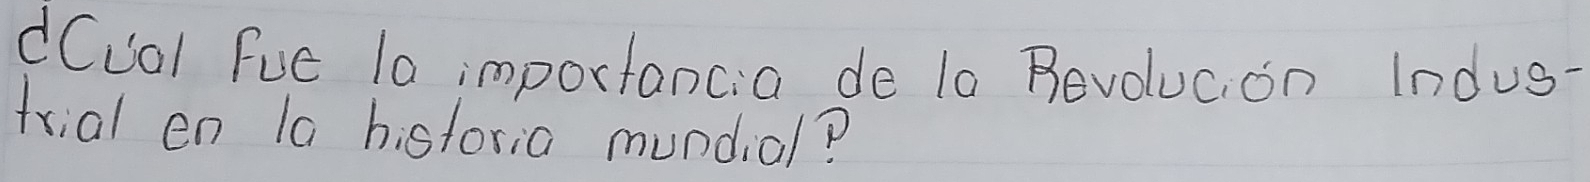 ¿Cúal fue la importancia de la Revolución Indus-
trial en la historia mundial?